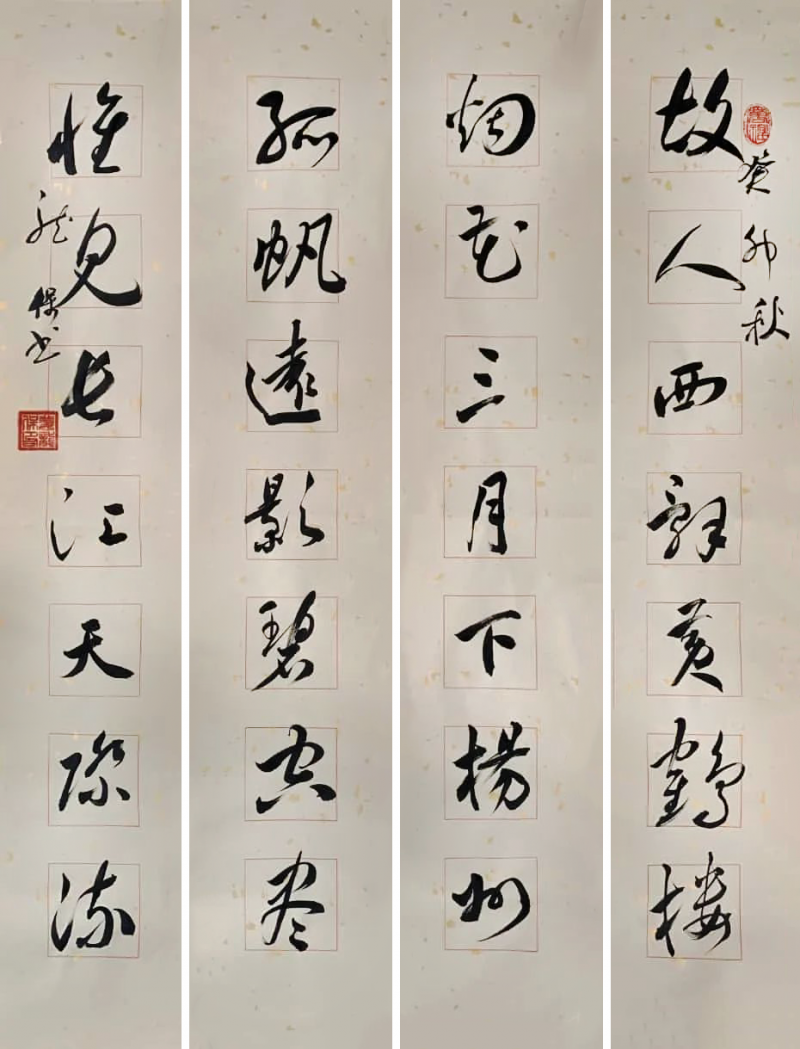 癸卯秋
故人西辞黄鶴楼
烟花三月下楊州
孤帆遠影碧空尽
惟見长江天際流
龙保书